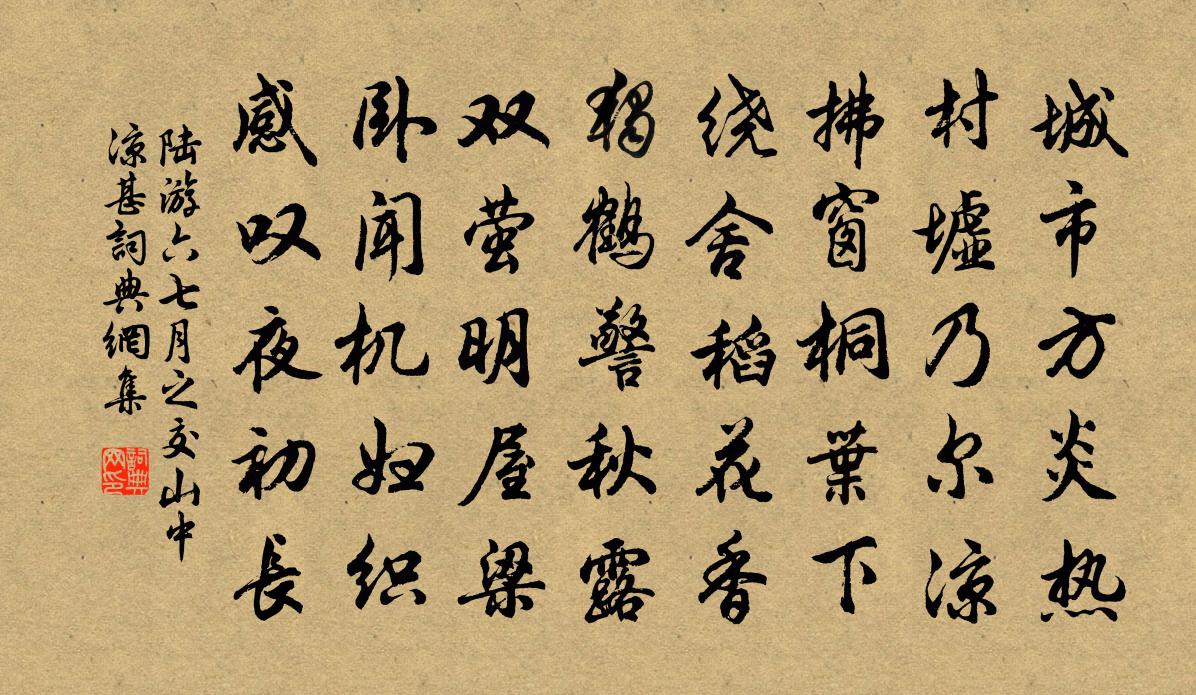 城市方炎热
村墟乃尔凉
拂窗桐葉下
绕舍稻花香
独鶴警秋露
双萤明屋梁
卧闻机妇织
感叹夜初長
陆游六七月之交山中
凉甚詞典網集
詞典
网印